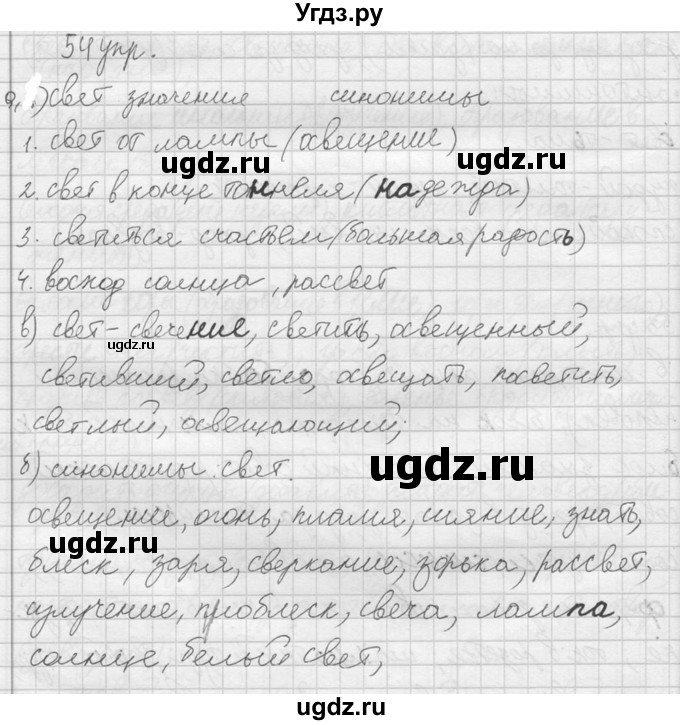 Угдз.ру
54 упр.
а, 1) свет значения синонимы
1. свет от лампы (освещение)
ugdz.ru ugdz.ru
2. свет в конце тоннеля (надежда)
3. светиться счастьем (большая радость)
4. восход солнца, рассвет
в) свет - свечение, светить, освещенный,
ugdz.ru
светивший, светло, освещать, посветить,
светлый, освещающий;
ugdz.ru
б) синонимы свет.
освещение, огонь, пламя, сияние, знать,
ugdz.ru
блеск, заря, сверкание, зорька, рассвет,
излучение, проблеск, свеча, лампа,
солнце, белый свет,
ugdz.ru
ugdz.ru